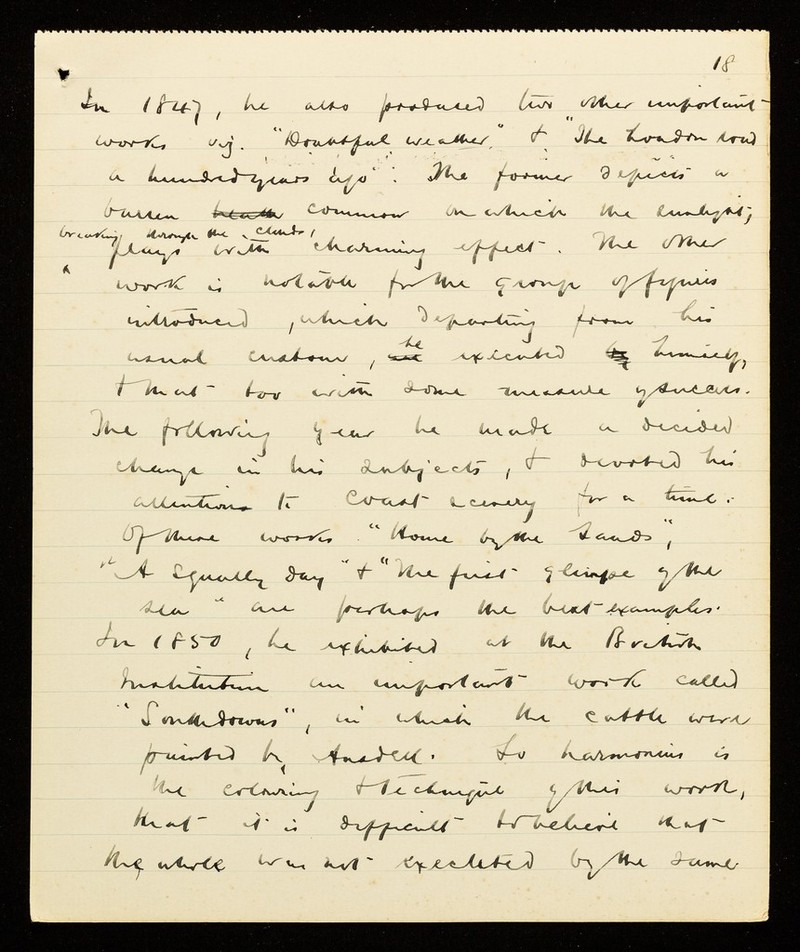 18
In 1847, he also produced two other important
works viz. "Doubtful weather" & "The London road
a hundred years ago". The former depicts a
barren heath common on which the sunlight,
breaking through the clouds,
plays with charming effect. The other
work is notable for the group of figures
introduced, which departing from his
usual custom, he executed by himself,
& that too with some measure of success.
The following year he made a decided
change in his subjects, & devoted his
attentions to coast scenery for a time.
Of these works "Home by the Sands",
"A Squally day" & "The first glimpse of the
sea" are perhaps the best examples.
In 1850, he exhibited at the British
Institution an important work called
"Southdowns", in which the cattle were
painted by Ansdell. So harmonious is
the colouring & technique of this work,
that it is difficult to believe that
the whole was not executed by the same